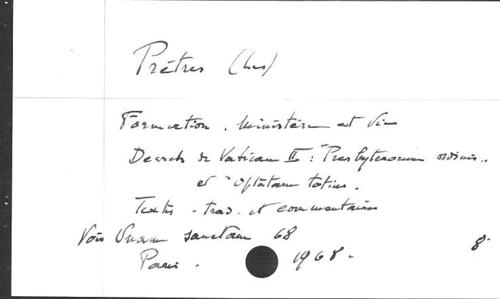 Prêtres (Les)
Formation. Ministère et Vie
Decrets de Vatican II : "Presbyterorum ordinis"
et "Optatam totius.
Textes - trad. et commentaires
Voir Unam sanctam 68
Paris. 1968. 8°